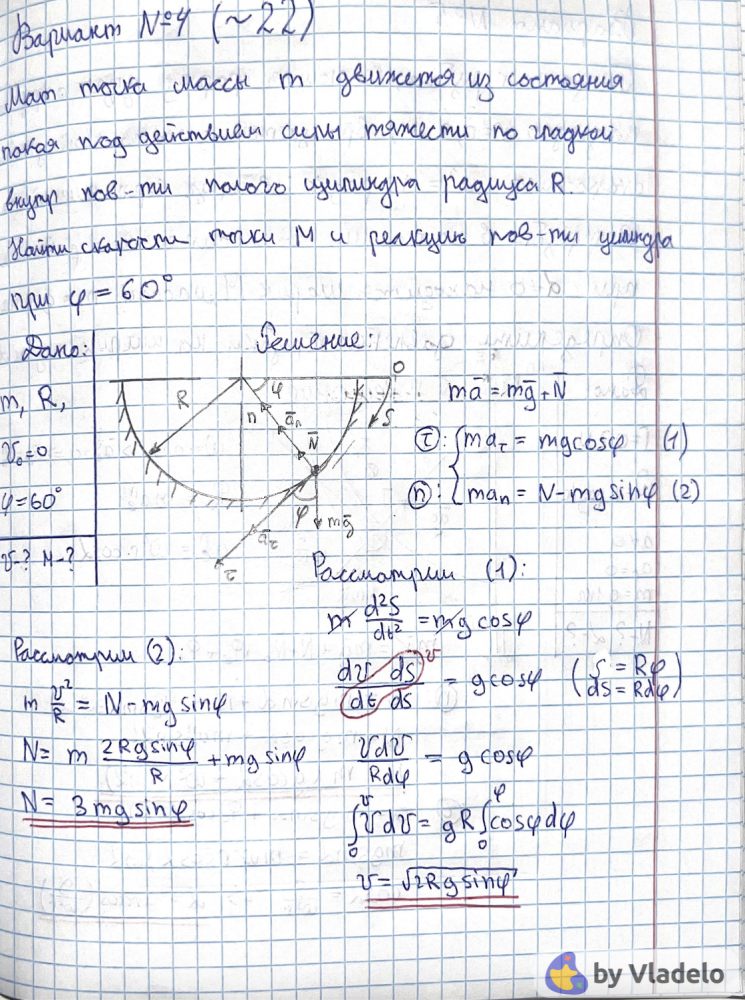 Вариант №4 (~22)
Мат точка массы m движется из состояния
покоя под действием силы тяжести по гладкой
внутр пов-ти полого цилиндра радиуса R.
Найти скорость точки M и реакцию пов-ти цилиндра
при φ = 60°
Дано:
m, R,
v₀=0
φ=60°
v-? N-?
Решение:
R
φ
O
S
n
a̅ₙ
N̅
φ
mg̅
a̅τ
τ
ma̅ = mg̅ + N̅
τ: { maτ = mg cosφ (1)
n: { maₙ = N - mg sinφ (2)
Рассмотрим (1):
m d²S/dt² = mg cosφ
dv dS / dt dS = g cosφ (S = Rφ
dS = Rdφ)
v
vdv / Rdφ = g cosφ
∫₀ᵛ vdv = gR ∫₀^φ cosφdφ
v = √2Rg sinφ
Рассмотрим (2):
m v²/R = N - mg sinφ
N = m 2Rg sinφ / R + mg sinφ
N = 3mg sinφ
by Vladelo